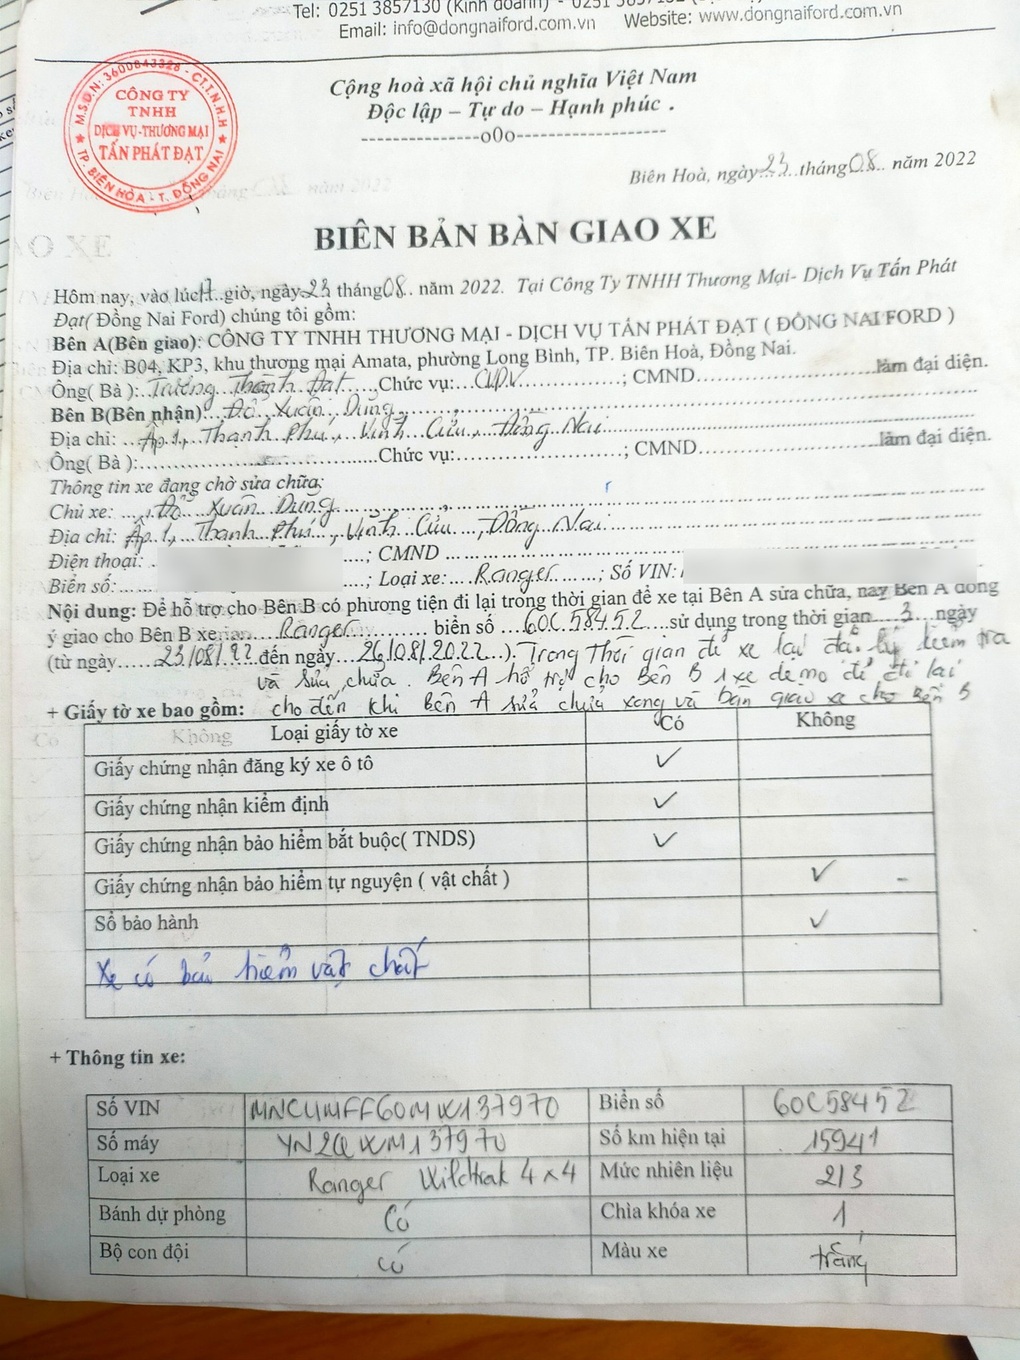 Tel: 0251 3857130 (Kinh doanh) - 0251
Email: info@dongnaiford.com.vn Website: www.dongnaiford.com.vn
M.S.D.N: 3600843328 - C.T.T.N.H.H
CÔNG TY
TNHH
DỊCH VỤ-THƯƠNG MẠI
TẤN PHÁT ĐẠT
TP. BIÊN HÒA - T. ĐỒNG NAI
Cộng hoà xã hội chủ nghĩa Việt Nam
Độc lập – Tự do – Hạnh phúc .
---------------o0o-------------------
Biên Hoà, ngày 23 tháng 08 năm 2022
BIÊN BẢN BÀN GIAO XE
Hôm nay, vào lúc 17 giờ, ngày 23 tháng 08 năm 2022. Tại Công Ty TNHH Thương Mại- Dịch Vụ Tấn Phát
Đạt( Đồng Nai Ford) chúng tôi gồm:
Bên A(Bên giao): CÔNG TY TNHH THƯƠNG MẠI - DỊCH VỤ TẤN PHÁT ĐẠT ( ĐỒNG NAI FORD )
Địa chỉ: B04, KP3, khu thương mại Amata, phường Long Bình, TP. Biên Hoà, Đồng Nai.
Ông( Bà ): Trương Thanh Đạt Chức vụ: CVDV ; CMND làm đại diện.
Bên B(Bên nhận): Đỗ Xuân Dũng
Địa chỉ: Ấp 1, Thạnh Phú, Vĩnh Cửu, Đồng Nai
Ông( Bà ): Chức vụ: ; CMND làm đại diện.
Thông tin xe đang chờ sửa chữa:
Chủ xe: Đỗ Xuân Dũng
Địa chỉ: Ấp 1, Thạnh Phú, Vĩnh Cửu, Đồng Nai
Điện thoại: ; CMND
Biển số: ; Loại xe: Ranger ; Số VIN:
Nội dung: Để hỗ trợ cho Bên B có phương tiện đi lại trong thời gian để xe tại Bên A sửa chữa, nay Bên A đồng
ý giao cho Bên B xe Ranger biển số 60C 584.52 sử dụng trong thời gian 3 ngày
(từ ngày 23/08/22 đến ngày 26/08/2022 ). Trong thời gian để xe lại đại lý kiểm tra
và sửa chữa. Bên A hỗ trợ cho Bên B 1 xe demo để đi lại
cho đến khi Bên A sửa chữa xong và bàn giao xe cho Bên B
+ Giấy tờ xe bao gồm:
Loại giấy tờ xe Có Không
Giấy chứng nhận đăng ký xe ô tô ✓
Giấy chứng nhận kiểm định ✓
Giấy chứng nhận bảo hiểm bắt buộc( TNDS) ✓
Giấy chứng nhận bảo hiểm tự nguyện ( vật chất ) ✓
Sổ bảo hành ✓
Xe có bảo hiểm vật chất
+ Thông tin xe:
Số VIN MNCUMFF60MW137970 Biển số 60C58452
Số máy YN2QWM137970 Số km hiện tại 15941
Loại xe Ranger Wildtrak 4x4 Mức nhiên liệu 2/3
Bánh dự phòng Có Chìa khóa xe 1
Bộ con đội có Màu xe trắng